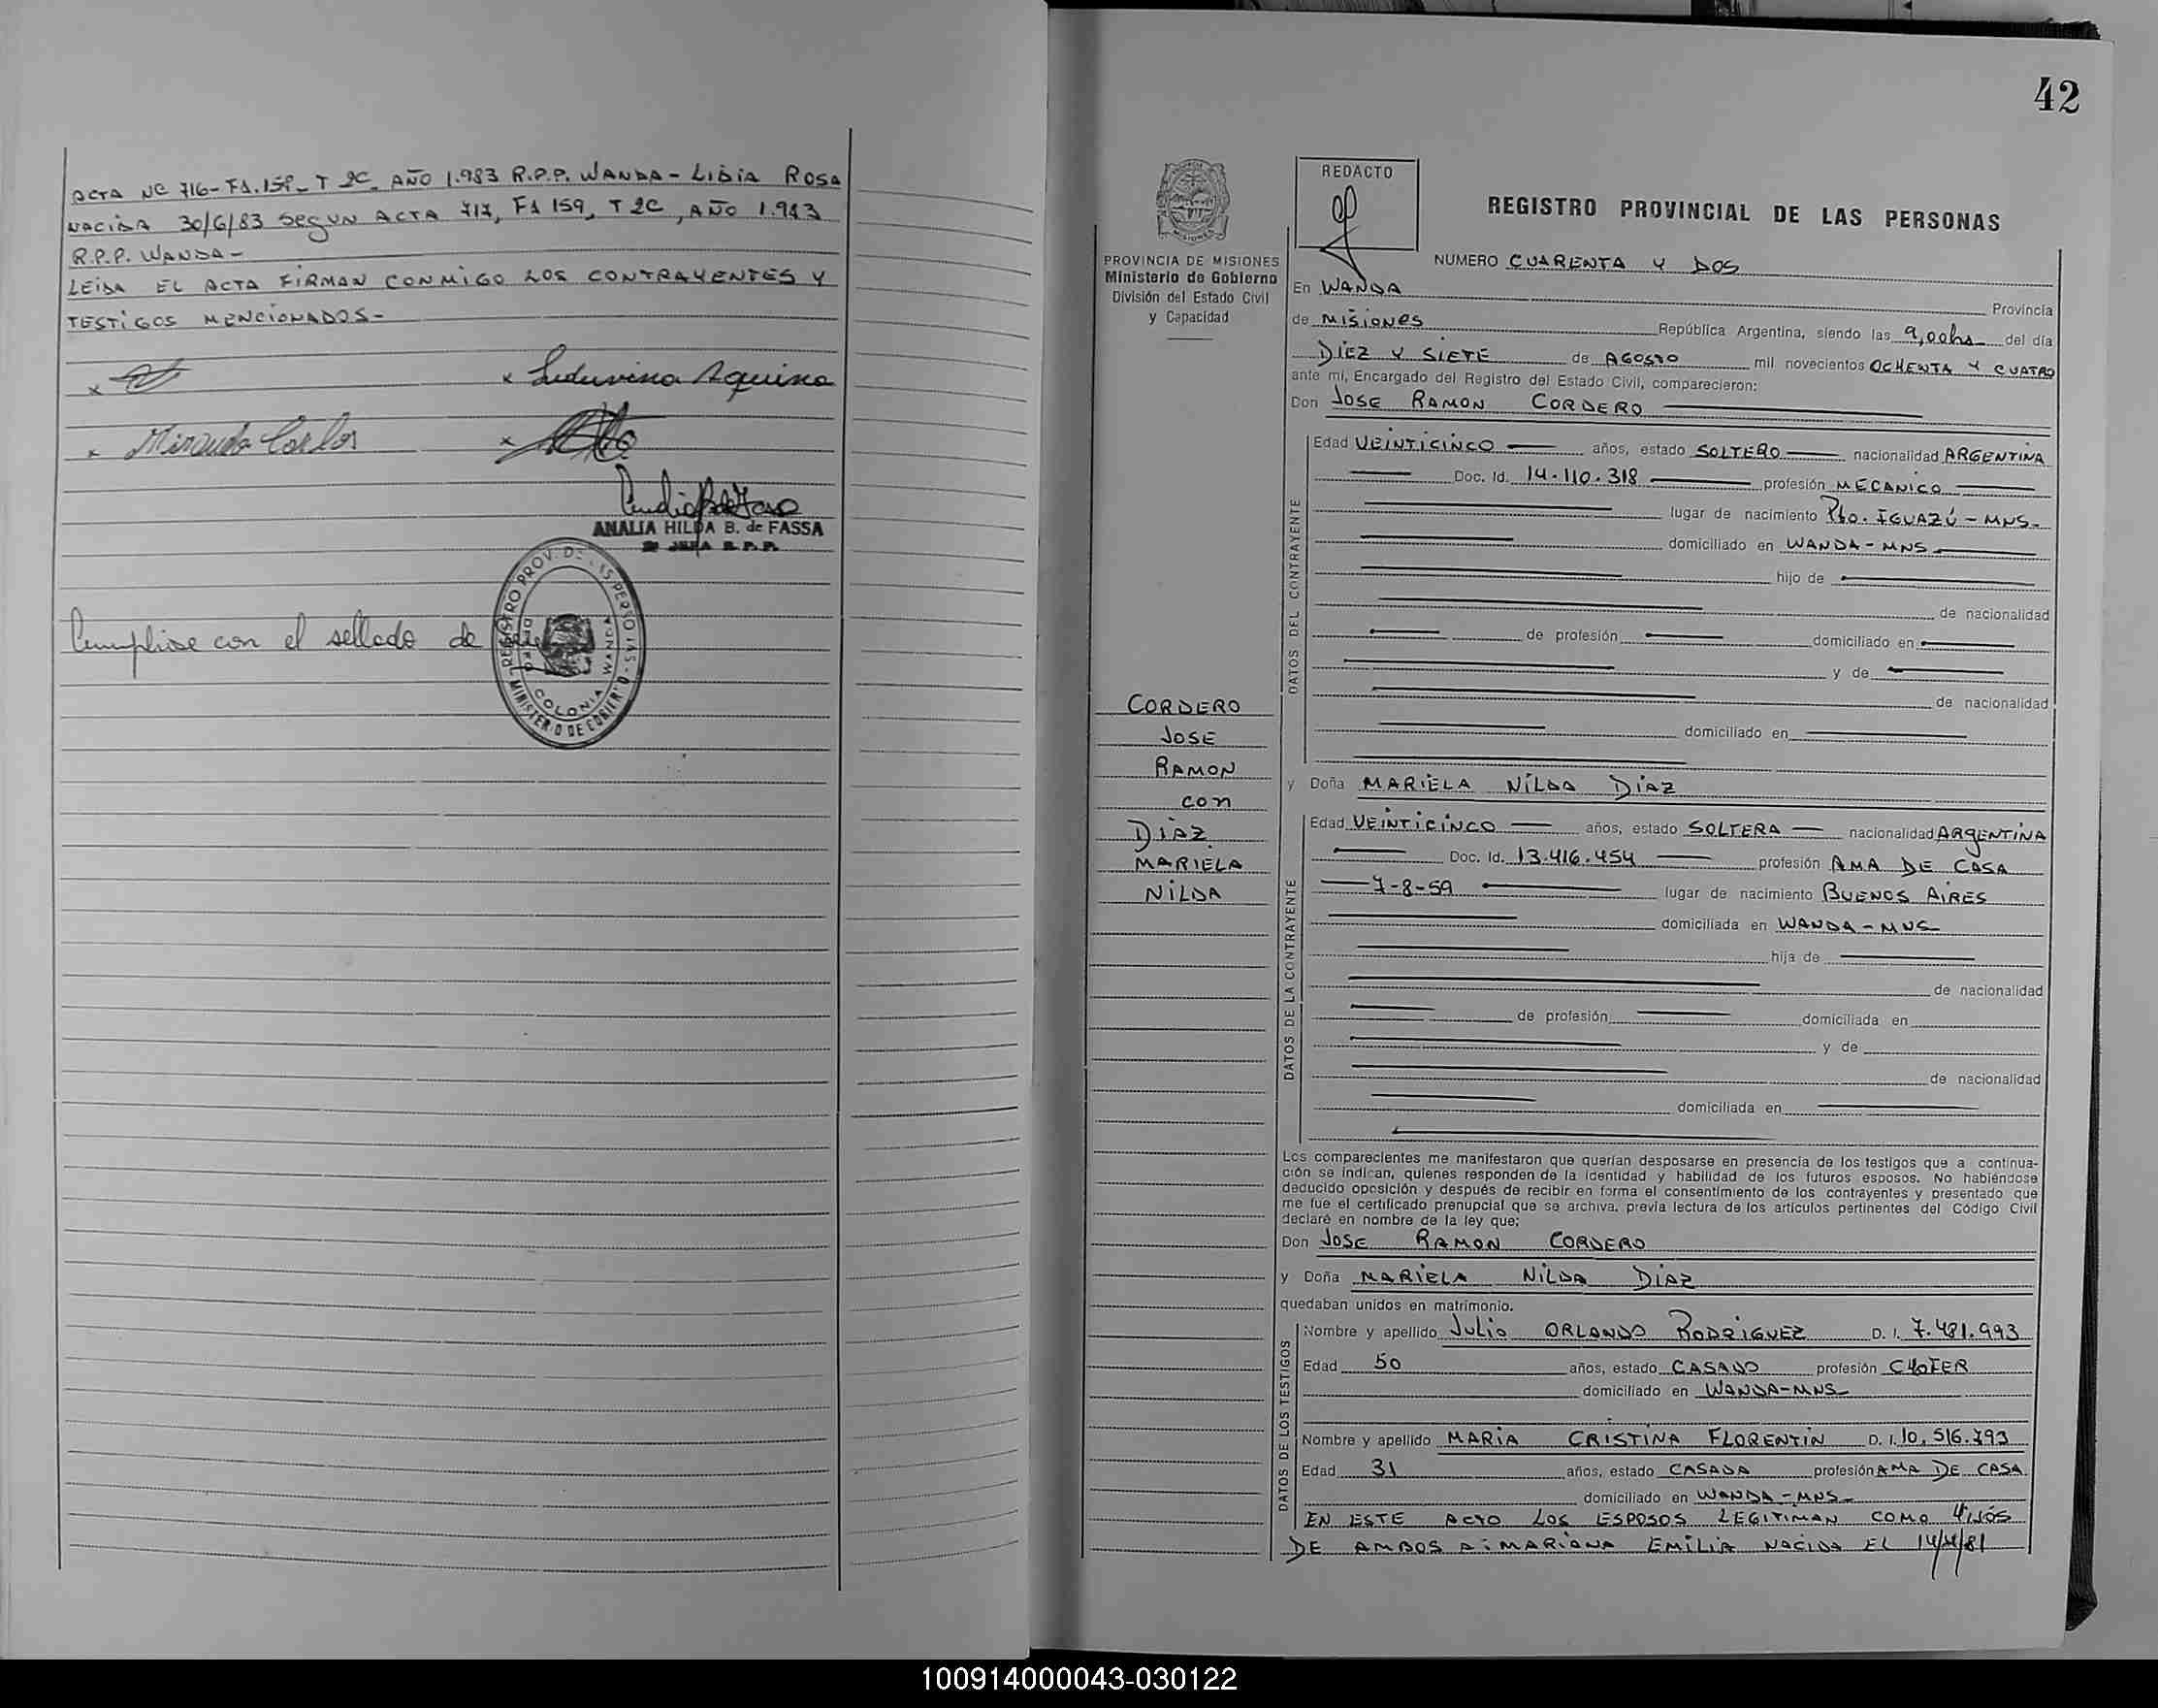 ACTA Nº 716-Fº.158-T 2C. AÑO 1.983 R.P.P. WANDA-LIDIA ROSA
NACIDA 30/6/83 SEGUN ACTA 717, Fº 159, T 2C, AÑO 1.983
R.P.P. WANDA-
LEIDA EL ACTA FIRMAN CONMIGO LOS CONTRAYENTES Y
TESTIGOS MENCIONADOS-
x
x Luduvina Aquino
x Miranda Carlos
x
ANALIA HILDA B. de FASSA
JEFA R.P.P.
REGISTRO PROV. DE LAS PERSONAS
COLONIA WANDA
MINISTERIO DE GOBIERNO
Cumpliose con el sellado de
42
REDACTO
REGISTRO PROVINCIAL DE LAS PERSONAS
PROVINCIA DE MISIONES
Ministerio de Gobierno
División del Estado Civil
y Capacidad
NUMERO CUARENTA Y DOS
En WANDA Provincia
de MISIONES República Argentina, siendo las 9,00hs del día
DIEZ Y SIETE de AGOSTO mil novecientos OCHENTA Y CUATRO
ante mí, Encargado del Registro del Estado Civil, comparecieron:
Don JOSE RAMON CORDERO
DATOS DEL CONTRAYENTE
Edad VEINTICINCO años, estado SOLTERO nacionalidad ARGENTINA
Doc. Id. 14.110.318 profesión MECANICO
lugar de nacimiento Pto. IGUAZÚ-MNS-
domiciliado en WANDA-MNS
hijo de
de nacionalidad
de profesión domiciliado en
y de
de nacionalidad
domiciliado en
CORDERO
JOSE
RAMON
con
DIAZ
MARIELA
NILDA
y Doña MARIELA NILDA DIAZ
DATOS DE LA CONTRAYENTE
Edad VEINTICINCO años, estado SOLTERA nacionalidad ARGENTINA
Doc. Id. 13.416.454 profesión AMA DE CASA
7-8-59 lugar de nacimiento BUENOS AIRES
domiciliada en WANDA-MNS
hija de
de nacionalidad
de profesión domiciliada en
y de
de nacionalidad
domiciliada en
Los comparecientes me manifestaron que querían desposarse en presencia de los testigos que a continua-
ción se indican, quienes responden de la identidad y habilidad de los futuros esposos. No habiéndose
deducido oposición y después de recibir en forma el consentimiento de los contrayentes y presentado que
me fue el certificado prenupcial que se archiva, previa lectura de los artículos pertinentes del Código Civil
declaré en nombre de la ley que:
Don JOSE RAMON CORDERO
y Doña MARIELA NILDA DIAZ
quedaban unidos en matrimonio.
DATOS DE LOS TESTIGOS
Nombre y apellido JULIO ORLANDO RODRIGUEZ D. I. 7.481.993
Edad 50 años, estado CASADO profesión CHOFER
domiciliado en WANDA-MNS
Nombre y apellido MARIA CRISTINA FLORENTIN D. I. 10.516.793
Edad 31 años, estado CASADA profesión AMA DE CASA
domiciliado en WANDA-MNS-
EN ESTE ACTO LOS ESPOSOS LEGITIMAN COMO HIJOS
DE AMBOS A: MARIANA EMILIA NACIDA EL 14/4/81
100914000043-030122